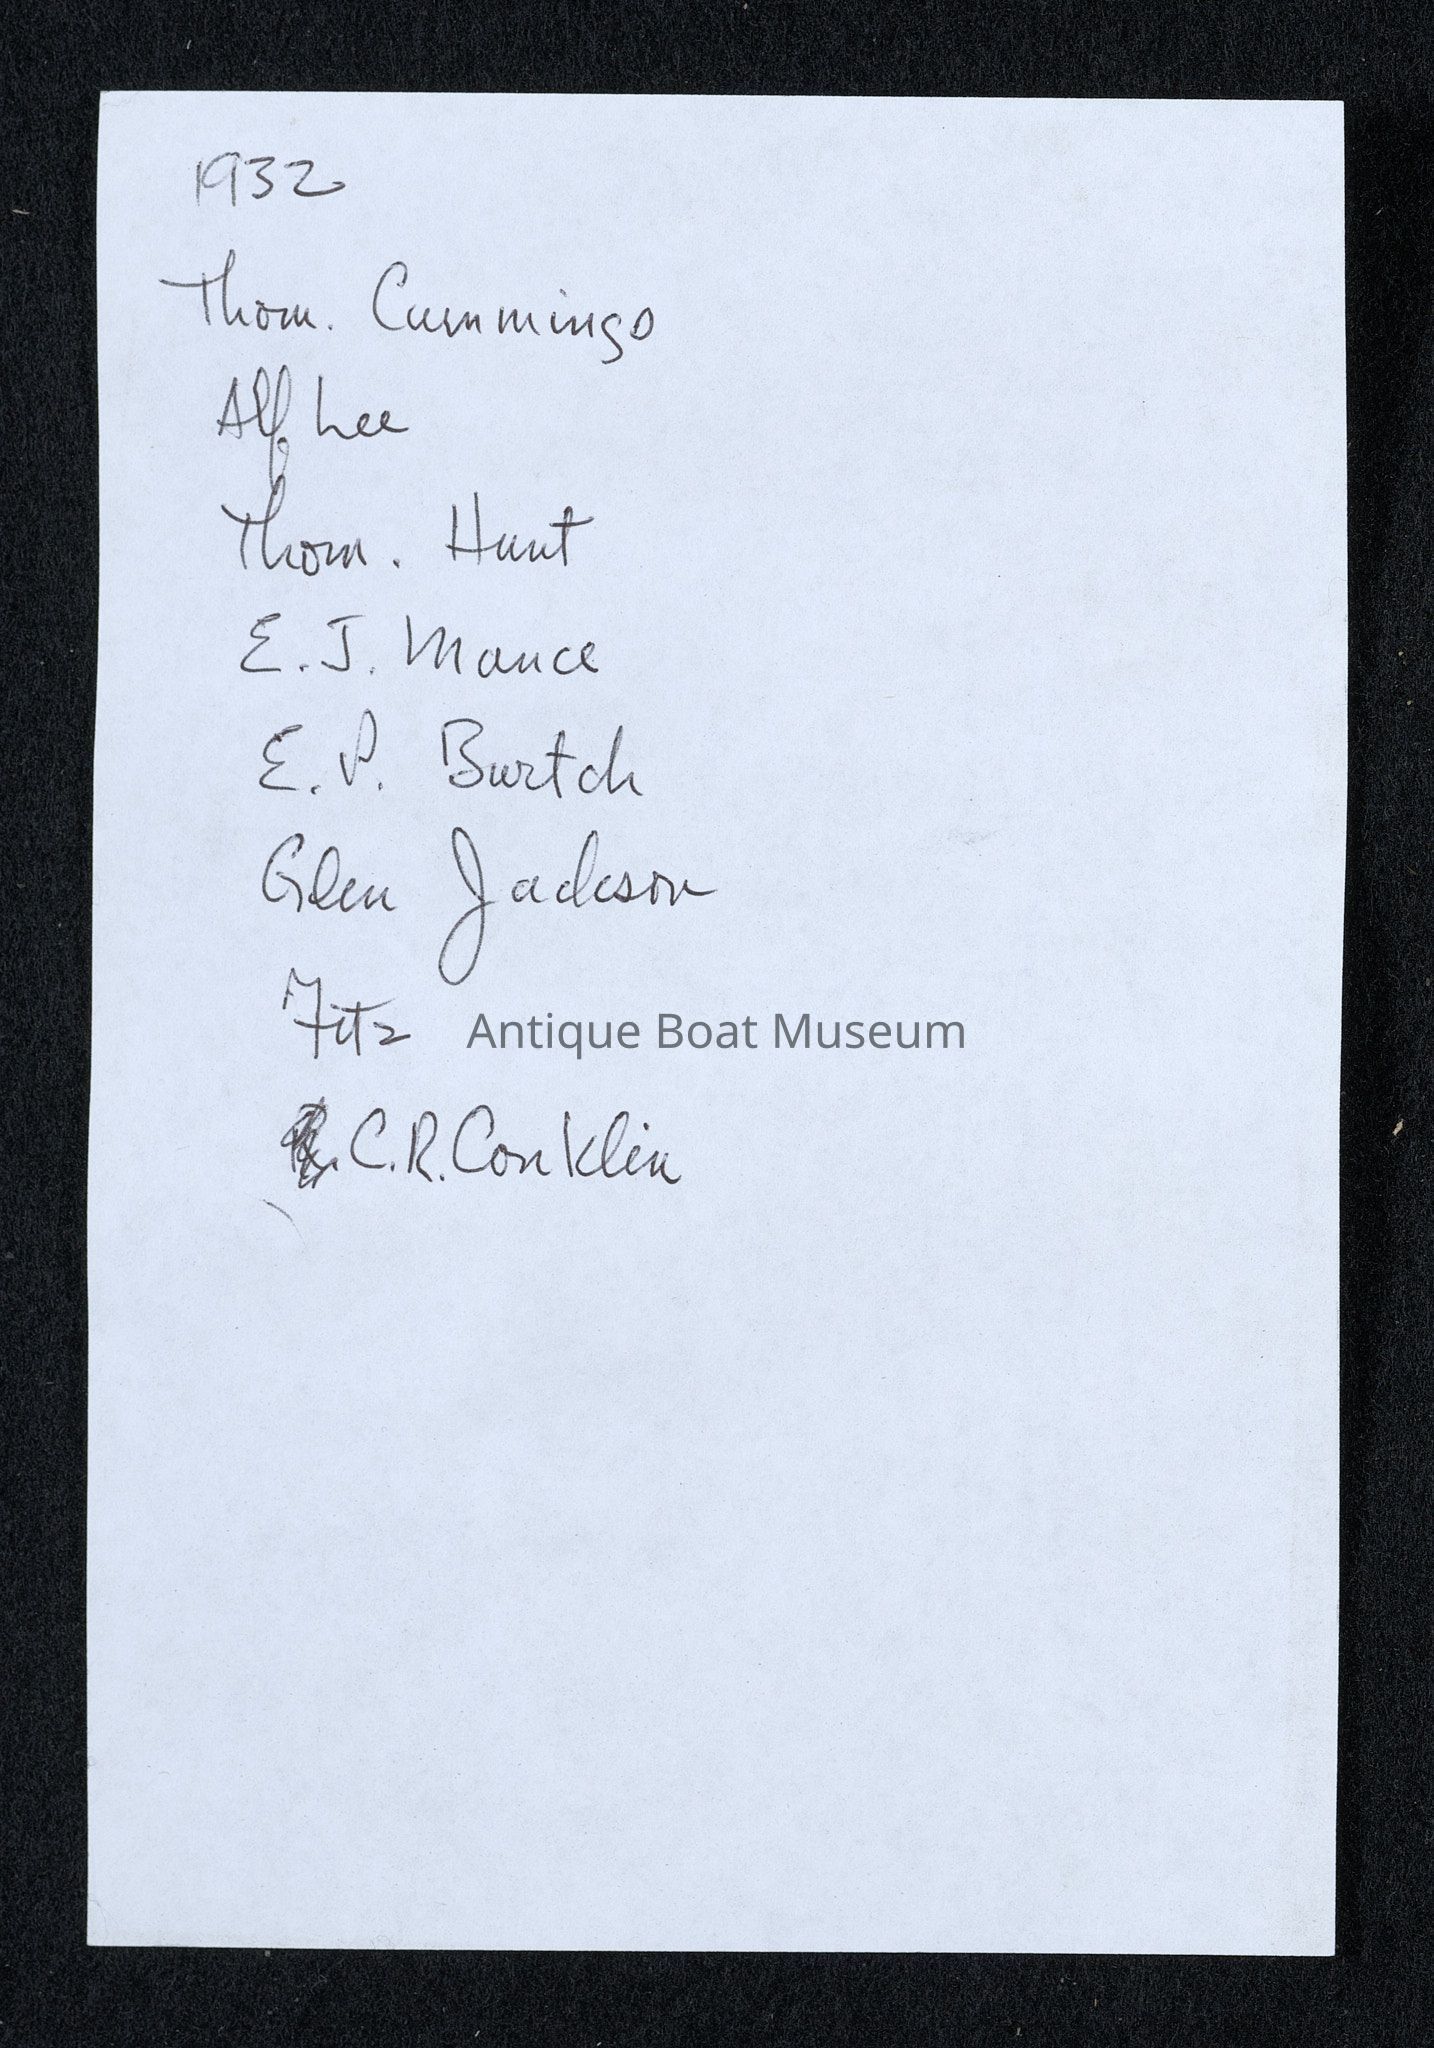 1932
Thom. Cummings
Alf. Lee
Thom. Hunt
E. J. Mance
E. P. Burtch
Glen Jackson
Fitz
Antique Boat Museum
C. R. Conklin